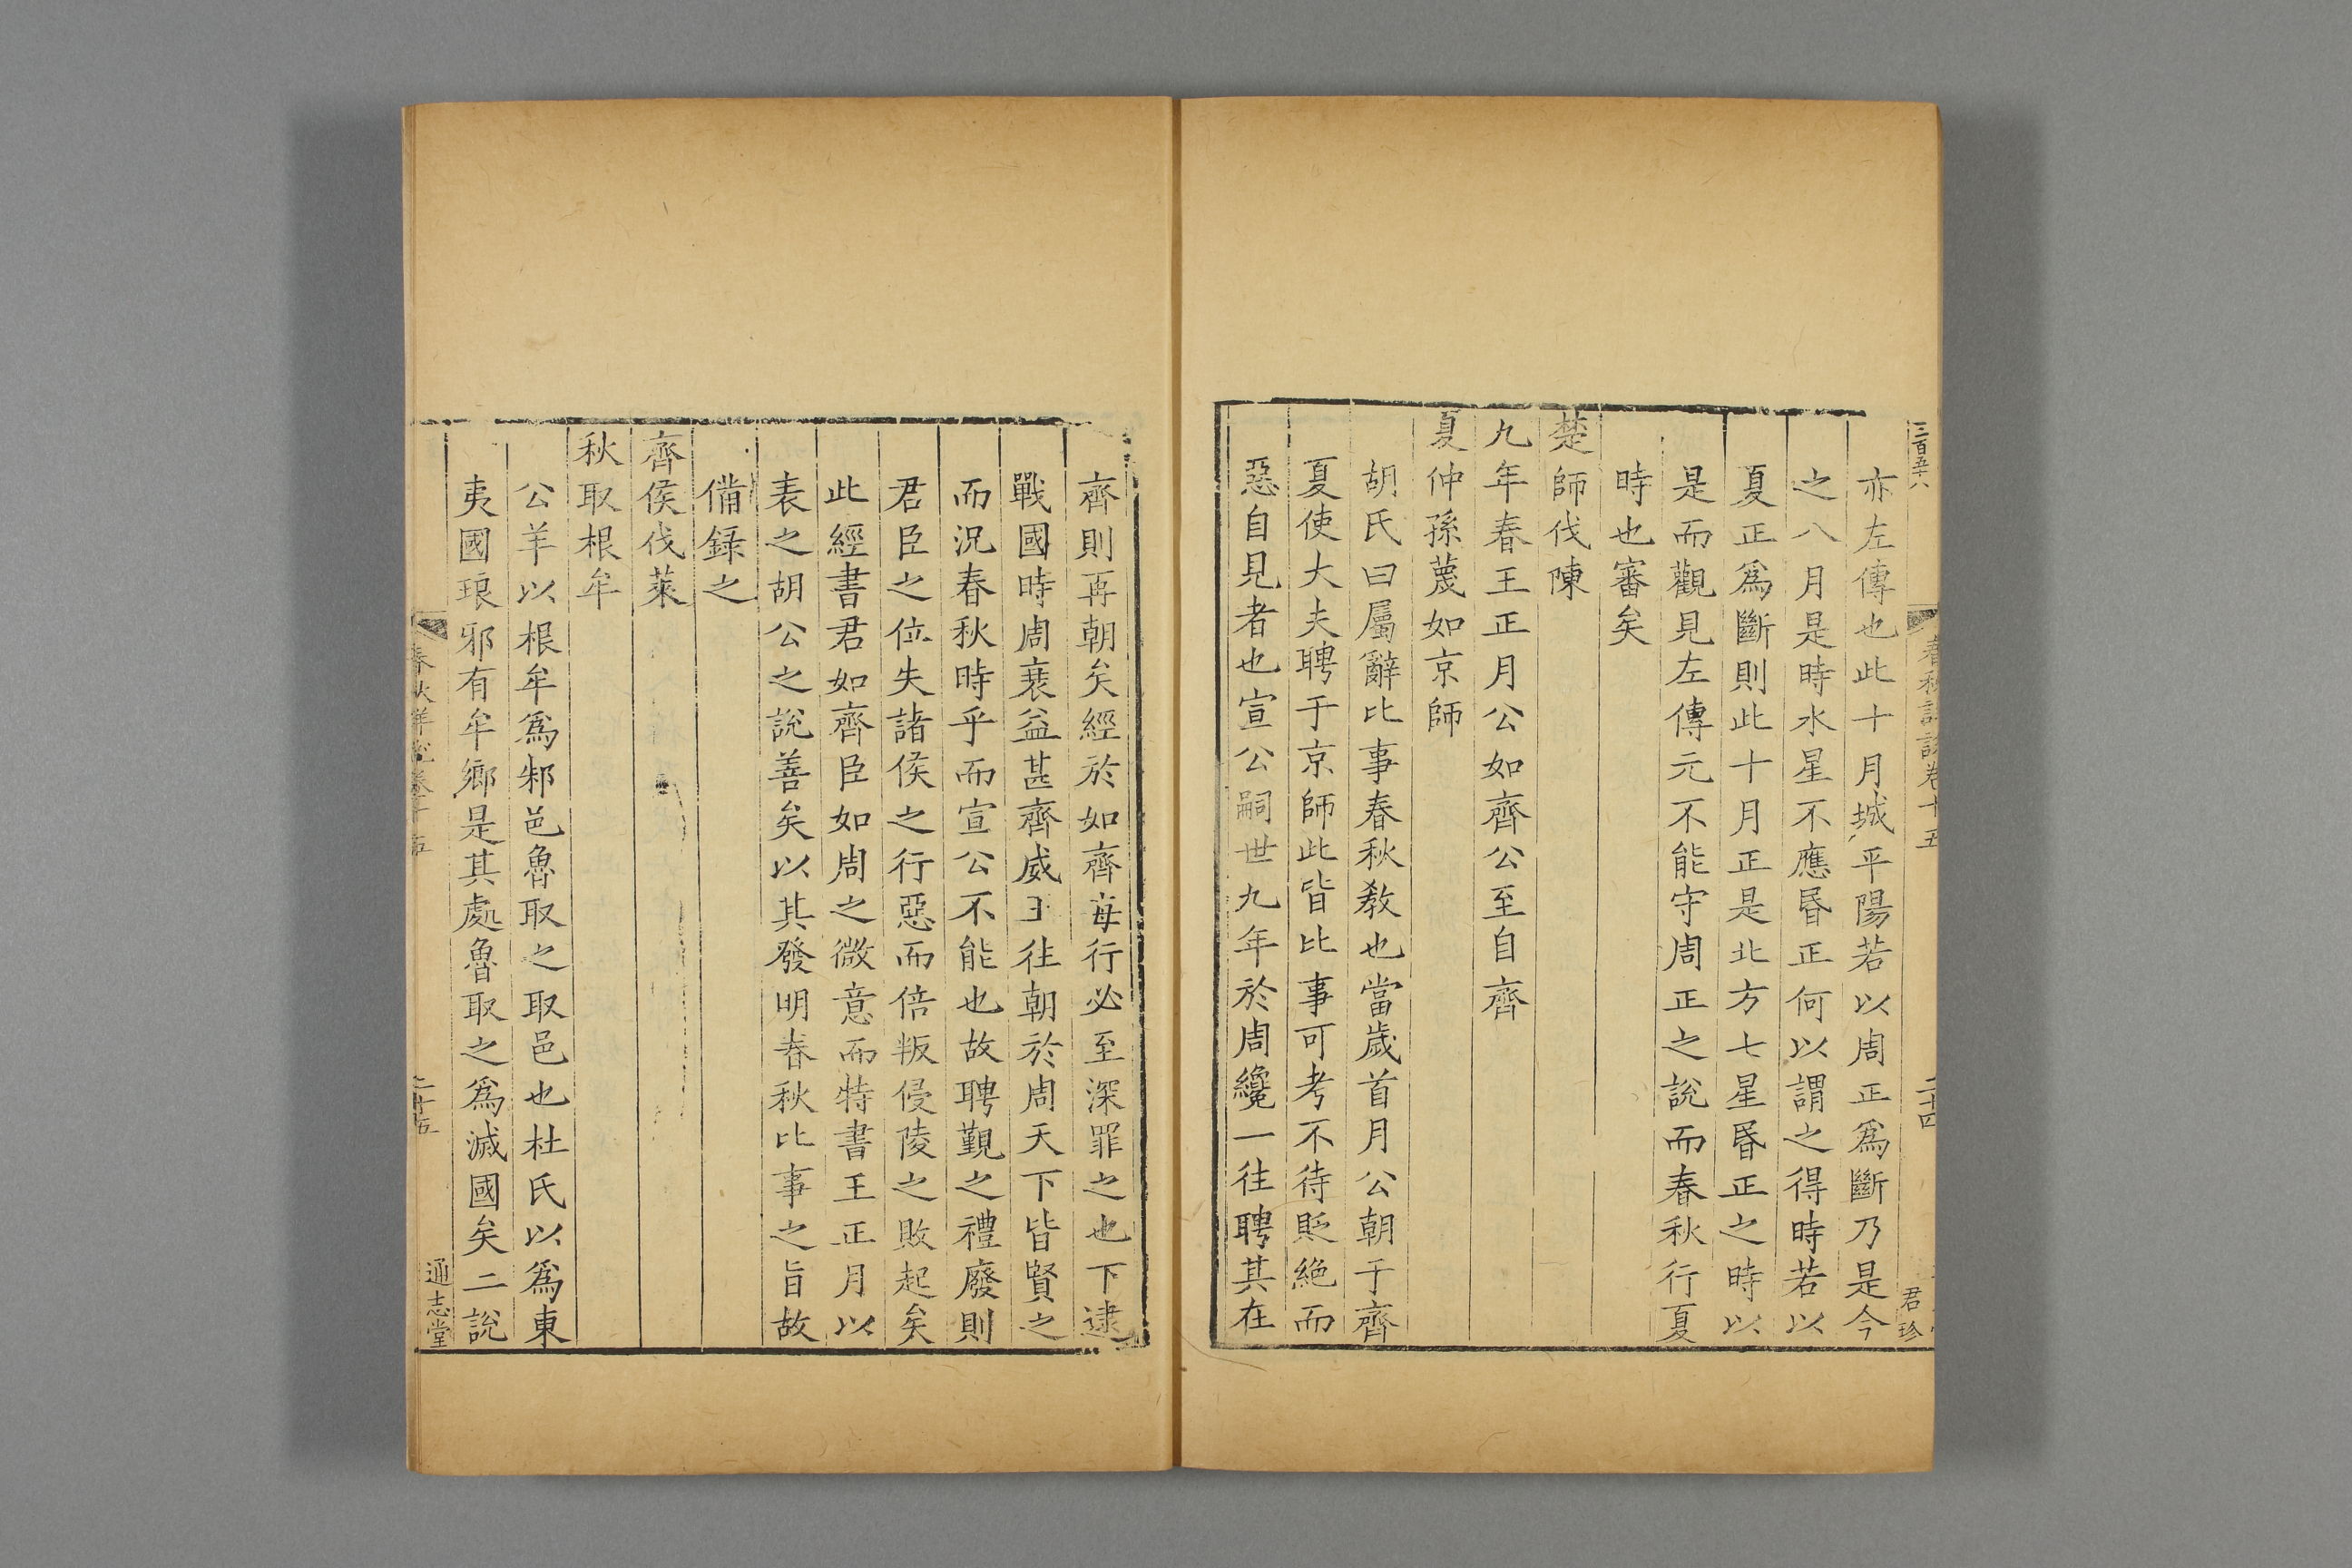 三百五十六
春秋詳說卷十五
二十四
君珍
亦左傳也此十月城平陽若以周正爲斷乃是今
之八月是時水星不應昬正何以謂之得時若以
夏正爲斷則此十月正是北方七星昬正之時以
是而觀見左傳元不能守周正之說而春秋行夏
時也審矣
楚師伐陳
九年春王正月公如齊公至自齊
夏仲孫蔑如京師
胡氏曰屬辭比事春秋教也當歲首月公朝于齊
夏使大夫聘于京師此皆比事可考不待貶絕而
惡自見者也宣公嗣世九年於周纔一往聘其在
齊則再朝矣經於如齊每行必至深罪之也下逮
戰國時周衰益甚齊威王往朝於周天下皆賢之
而況春秋時乎而宣公不能也故聘覲之禮廢則
君臣之位失諸侯之行惡而倍叛侵陵之敗起矣
此經書君如齊臣如周之微意而特書王正月以
表之胡公之說善矣以其發明春秋比事之旨故
備録之
齊侯伐萊
秋取根牟
公羊以根牟爲邾邑魯取之取邑也杜氏以爲東
夷國琅邪有牟鄉是其處魯取之爲滅國矣二說
春秋詳說卷十五
二十五
通志堂